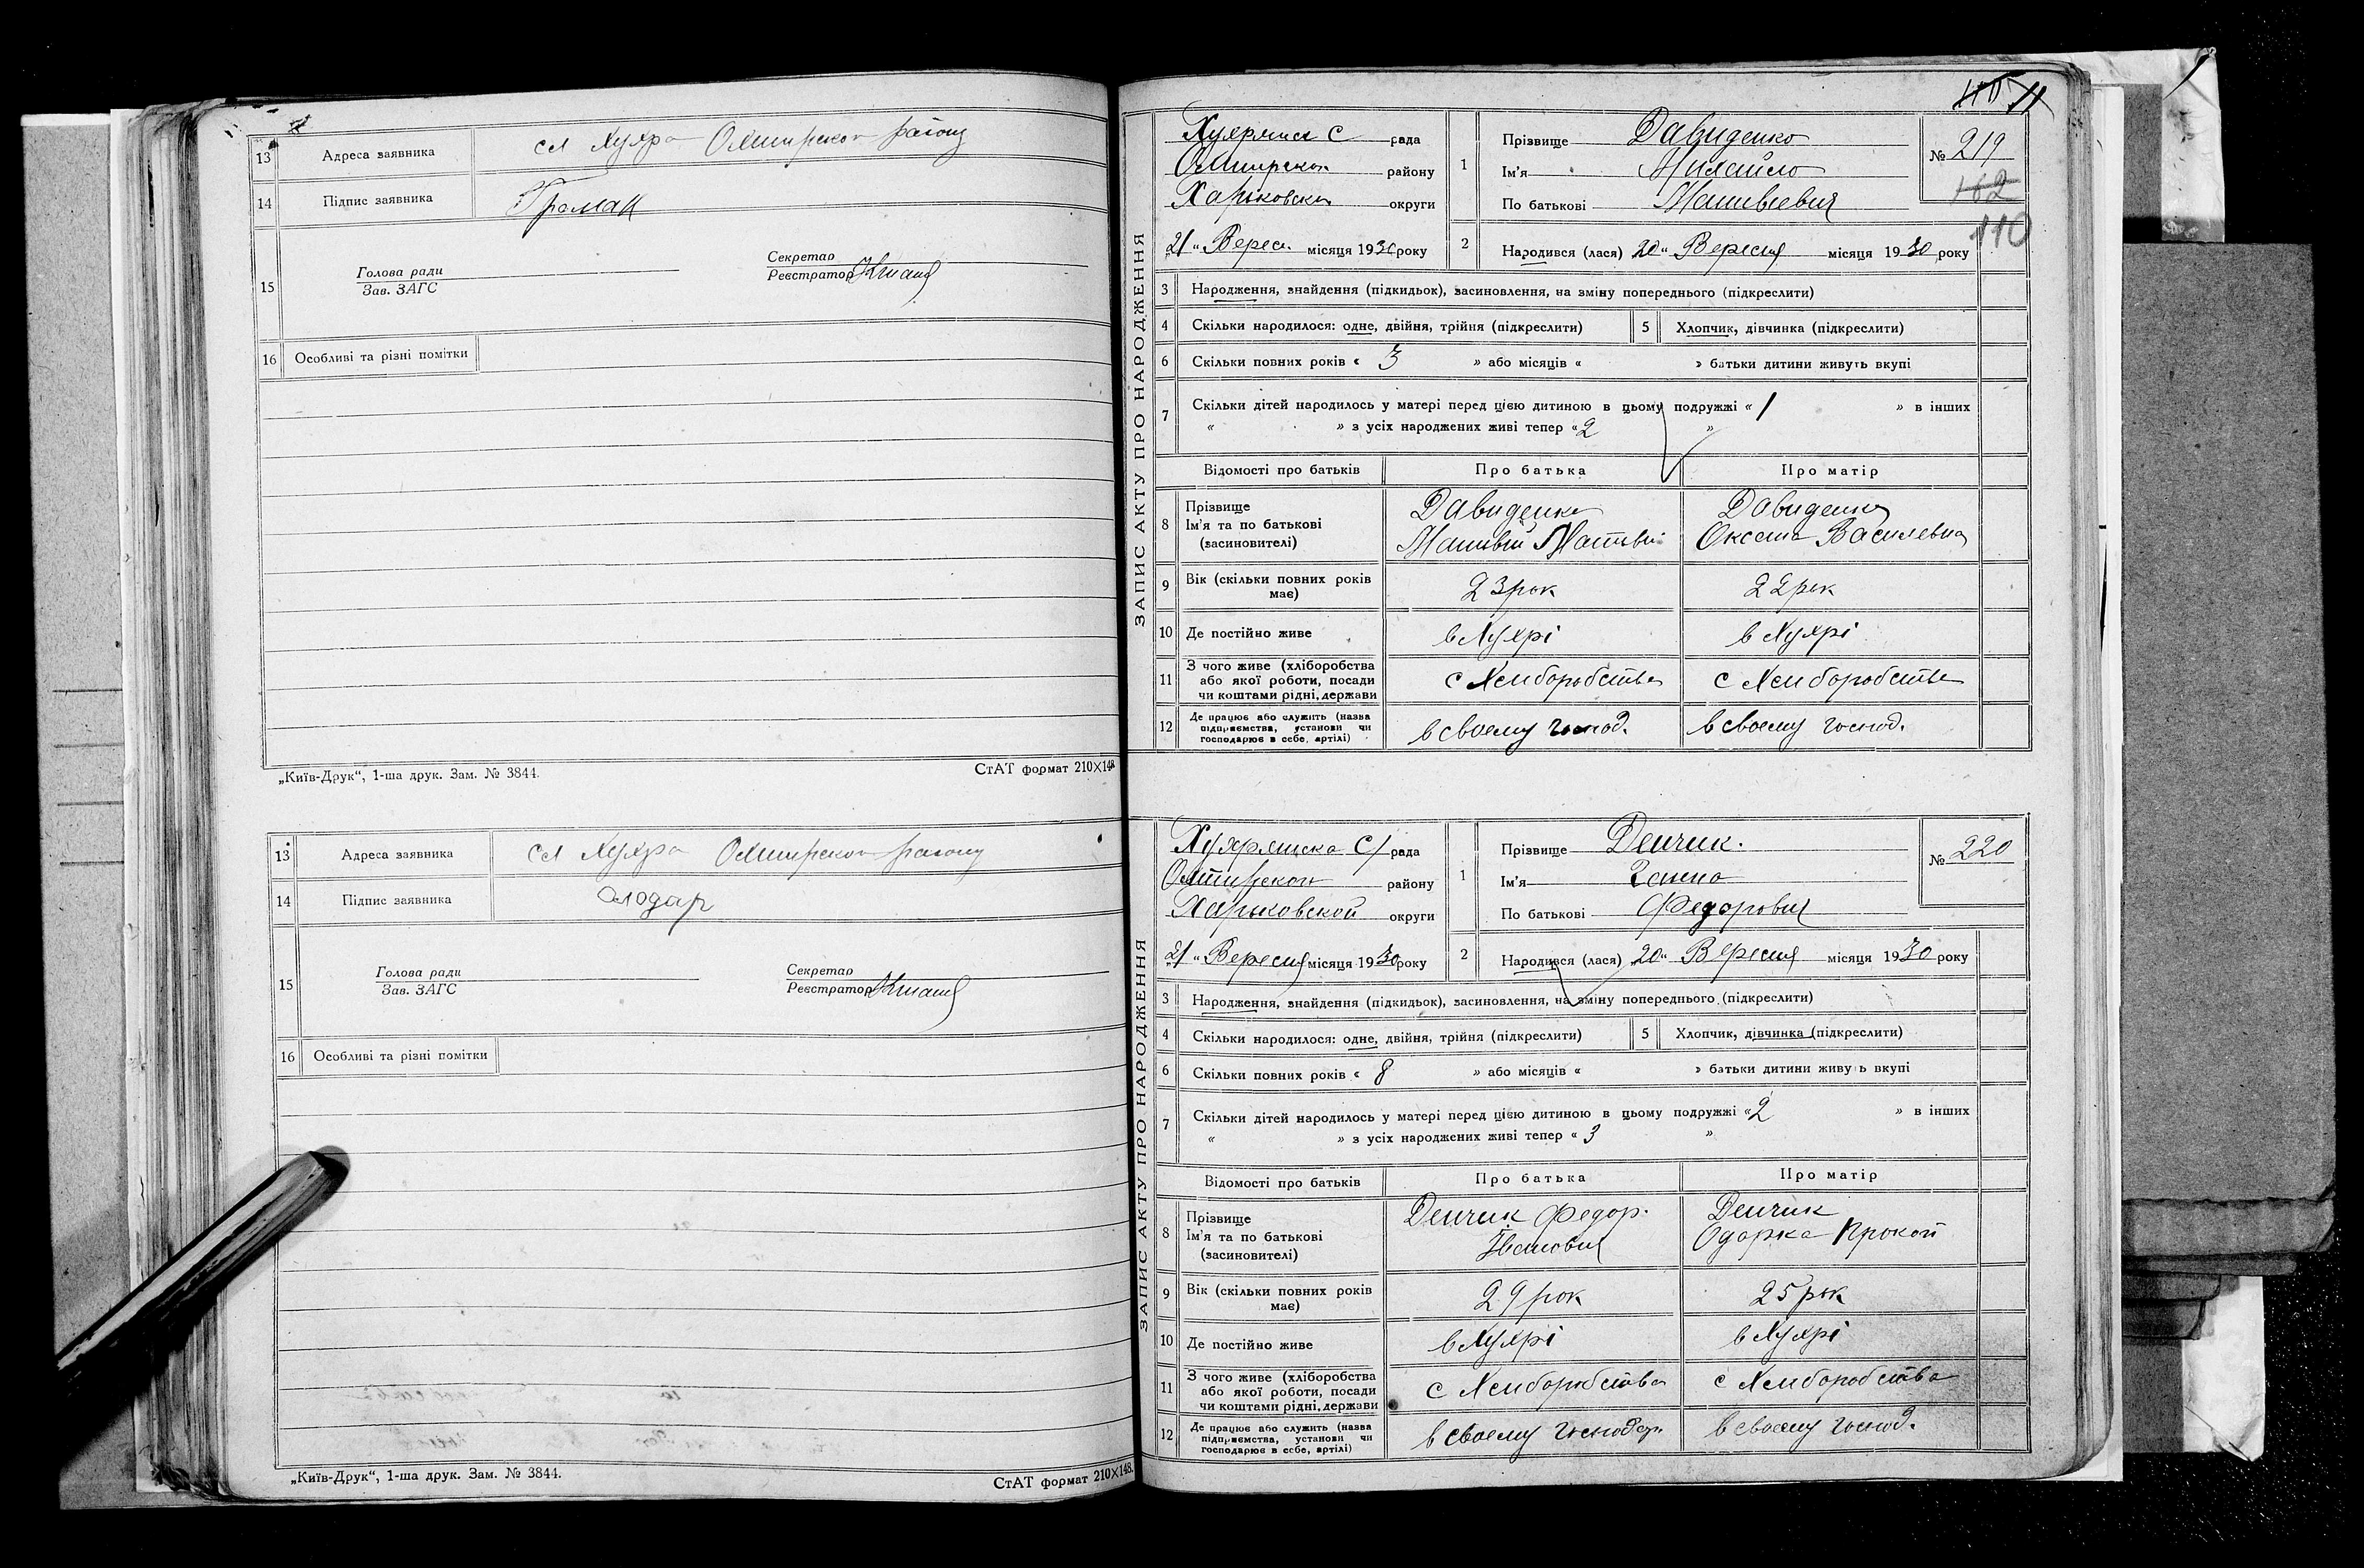 13 Адреса заявника сл Хухра Охтирского району
14 Підпис заявника
15 Голова ради
Зав. ЗАГС
Секретар
Реєстратор
16 Особливі та різні помітки
„Київ-Друк“, 1-ша друк. Зам. № 3844.
СтАТ формат 210×148
13 Адреса заявника сл Хухра Охтирского району
14 Підпис заявника
15 Голова ради
Зав. ЗАГС
Секретар
Реєстратор
16 Особливі та різні помітки
„Київ-Друк“, 1-ша друк. Зам. № 3844.
СтАТ формат 210×148.
ЗАПИС АКТУ ПРО НАРОДЖЕННЯ
С рада
району
округи
„21“ Верес. місяця 1930 року
1 Прізвище Давиденко
Ім'я Михайло
По батькові Матвієвич
№ 219
162
110
2 Народився (лася) 20“ Вересня місяця 1930 року
3 Народження, знайдення (підкидьок), засиновлення, на зміну попереднього (підкреслити)
4 Скільки народилося: одне, двійня, трійня (підкреслити)
5 Хлопчик, дівчинка (підкреслити)
6 Скільки повних років « 3 » або місяців « » батьки дитини живуть вкупі
7 Скільки дітей народилось у матері перед цією дитиною в цьому подружжі « 1 » в інших
« » з усіх народжених живі тепер « 2 »
Відомості про батьків Про батька Про матір
8 Прізвище
Ім'я та по батькові
(засиновителі)
Давиденко
Матвій Матвій
Давиденко
Оксана Василевна
9 Вік (скільки повних років має) 23 рок 22 рок
10 Де постійно живе в Хухрі в Хухрі
11 З чого живе (хліборобства
або якої роботи, посади
чи коштами рідні, держави
с Хлиборобства с Хлиборобства
12 Де працює або служить (назва
підприємства, установи чи
господарює в себе, артілі)
в своему господ. в своему господ.
ЗАПИС АКТУ ПРО НАРОДЖЕННЯ
Хухрянска С/рада
Охтирского району
Харьковской округи
„21“ Вересня місяця 1930 року
1 Прізвище Денчик.
Ім'я
По батькові Федорович
№ 220
2 Народився (лася) „20“ Вересня місяця 1930 року
3 Народження, знайдення (підкидьок), засиновлення, на зміну попереднього (підкреслити)
4 Скільки народилося: одне, двійня, трійня (підкреслити)
5 Хлопчик, дівчинка (підкреслити)
6 Скільки повних років « 8 » або місяців « » батьки дитини живуть вкупі
7 Скільки дітей народилось у матері перед цією дитиною в цьому подружжі « 2 » в інших
« » з усіх народжених живі тепер « 3 »
Відомості про батьків Про батька Про матір
8 Прізвище
Ім'я та по батькові
(засиновителі)
Денчик Федор.
Іванович
Денчик
Одарка Прокоп
9 Вік (скільки повних років має) 29 рок 25 рок
10 Де постійно живе в Хухрі в Хухрі
11 З чого живе (хліборобства
або якої роботи, посади
чи коштами рідні, держави
с Хлиборобства с Хлиборобства
12 Де працює або служить (назва
підприємства, установи чи
господарює в себе, артілі)
в своему господар. в своему господ.